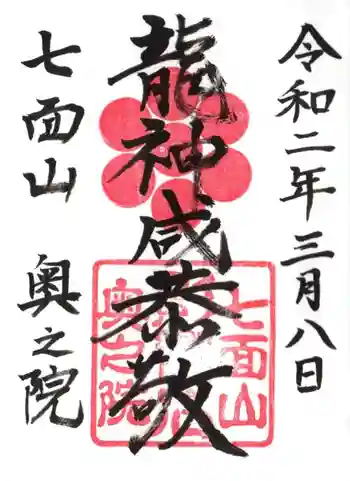 令和二年三月八日
龍神咸恭敬
七面山 奥之院
七面山
奥之院